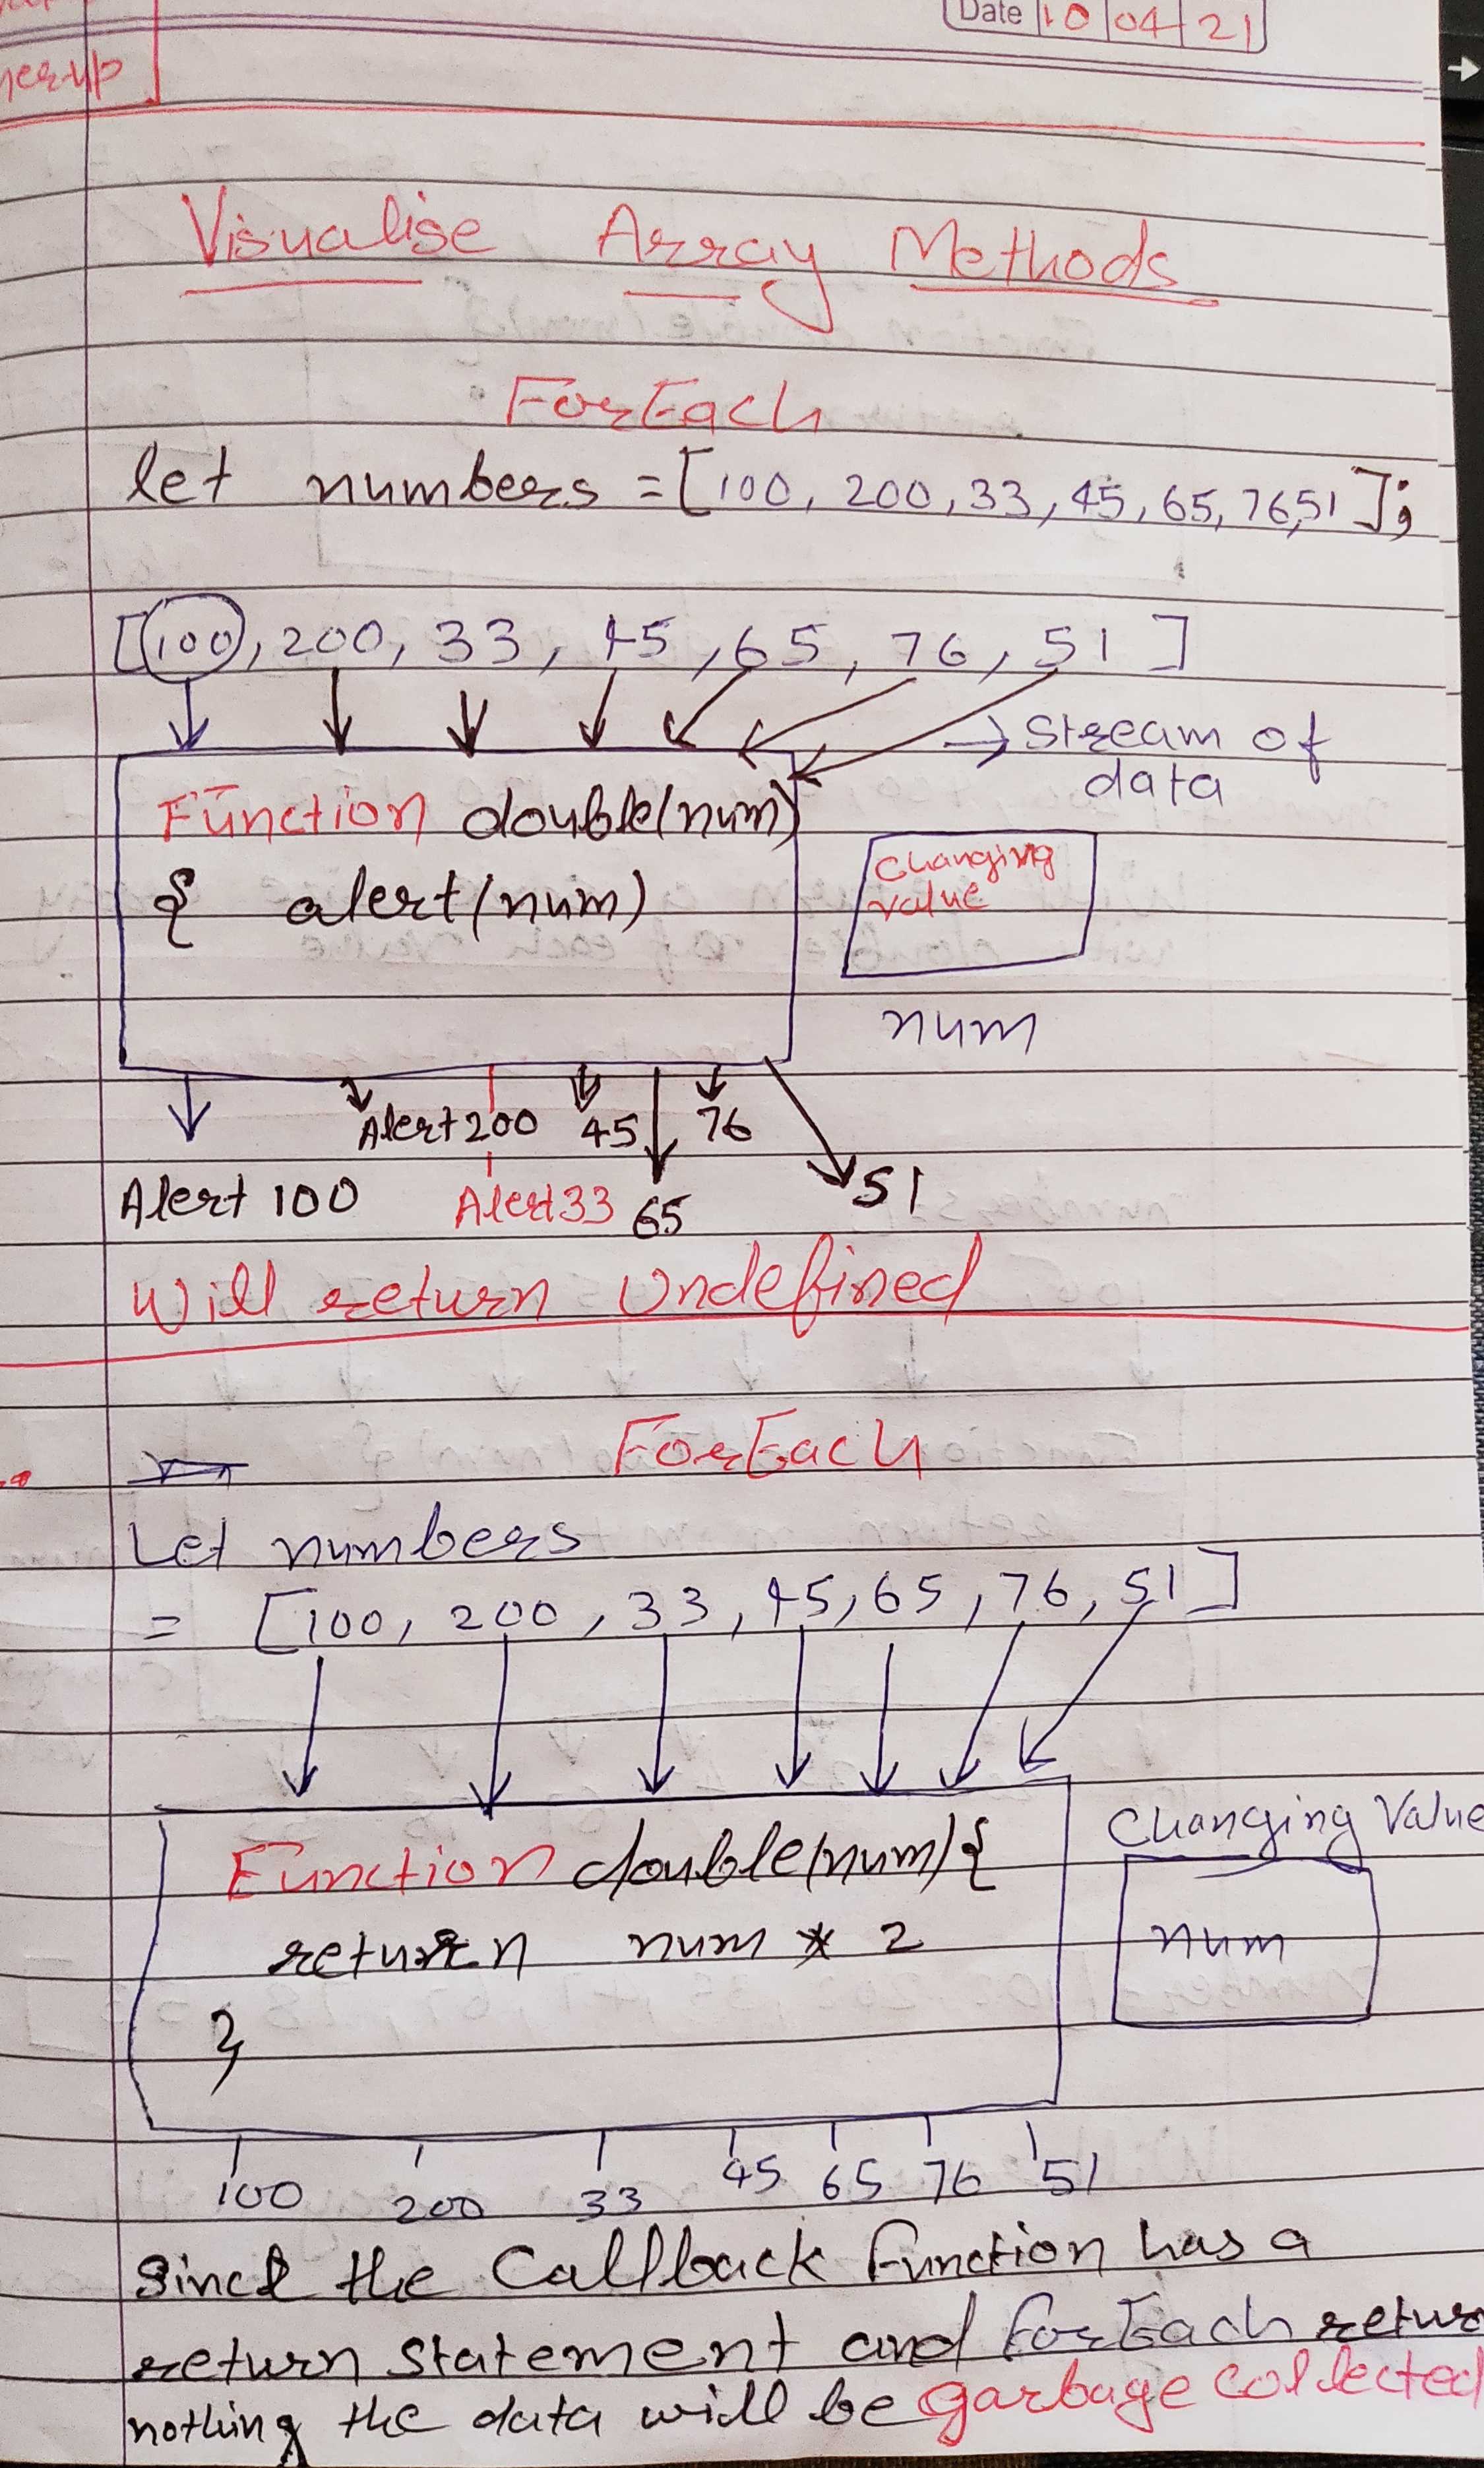 Date 10 04 21
Visualise Array Methods
ForEach
let numbers = [100, 200, 33, 45, 65, 76, 51];
[100, 200, 33, 45, 65, 76, 51]
→ Stream of
data
Function double(num)
{ alert(num)
Changing
value
num
Alert 200 45 76
Alert 100 Alert 33 65 51
Will return Undefined
ForEach
Let numbers
= [100, 200, 33, 45, 65, 76, 51]
Changing Value
Function double(num){
return num * 2
num
}
100 200 33 45 65 76 51
Since the Callback Function has a
return statement and ForEach retur
nothing the data will be garbage collected